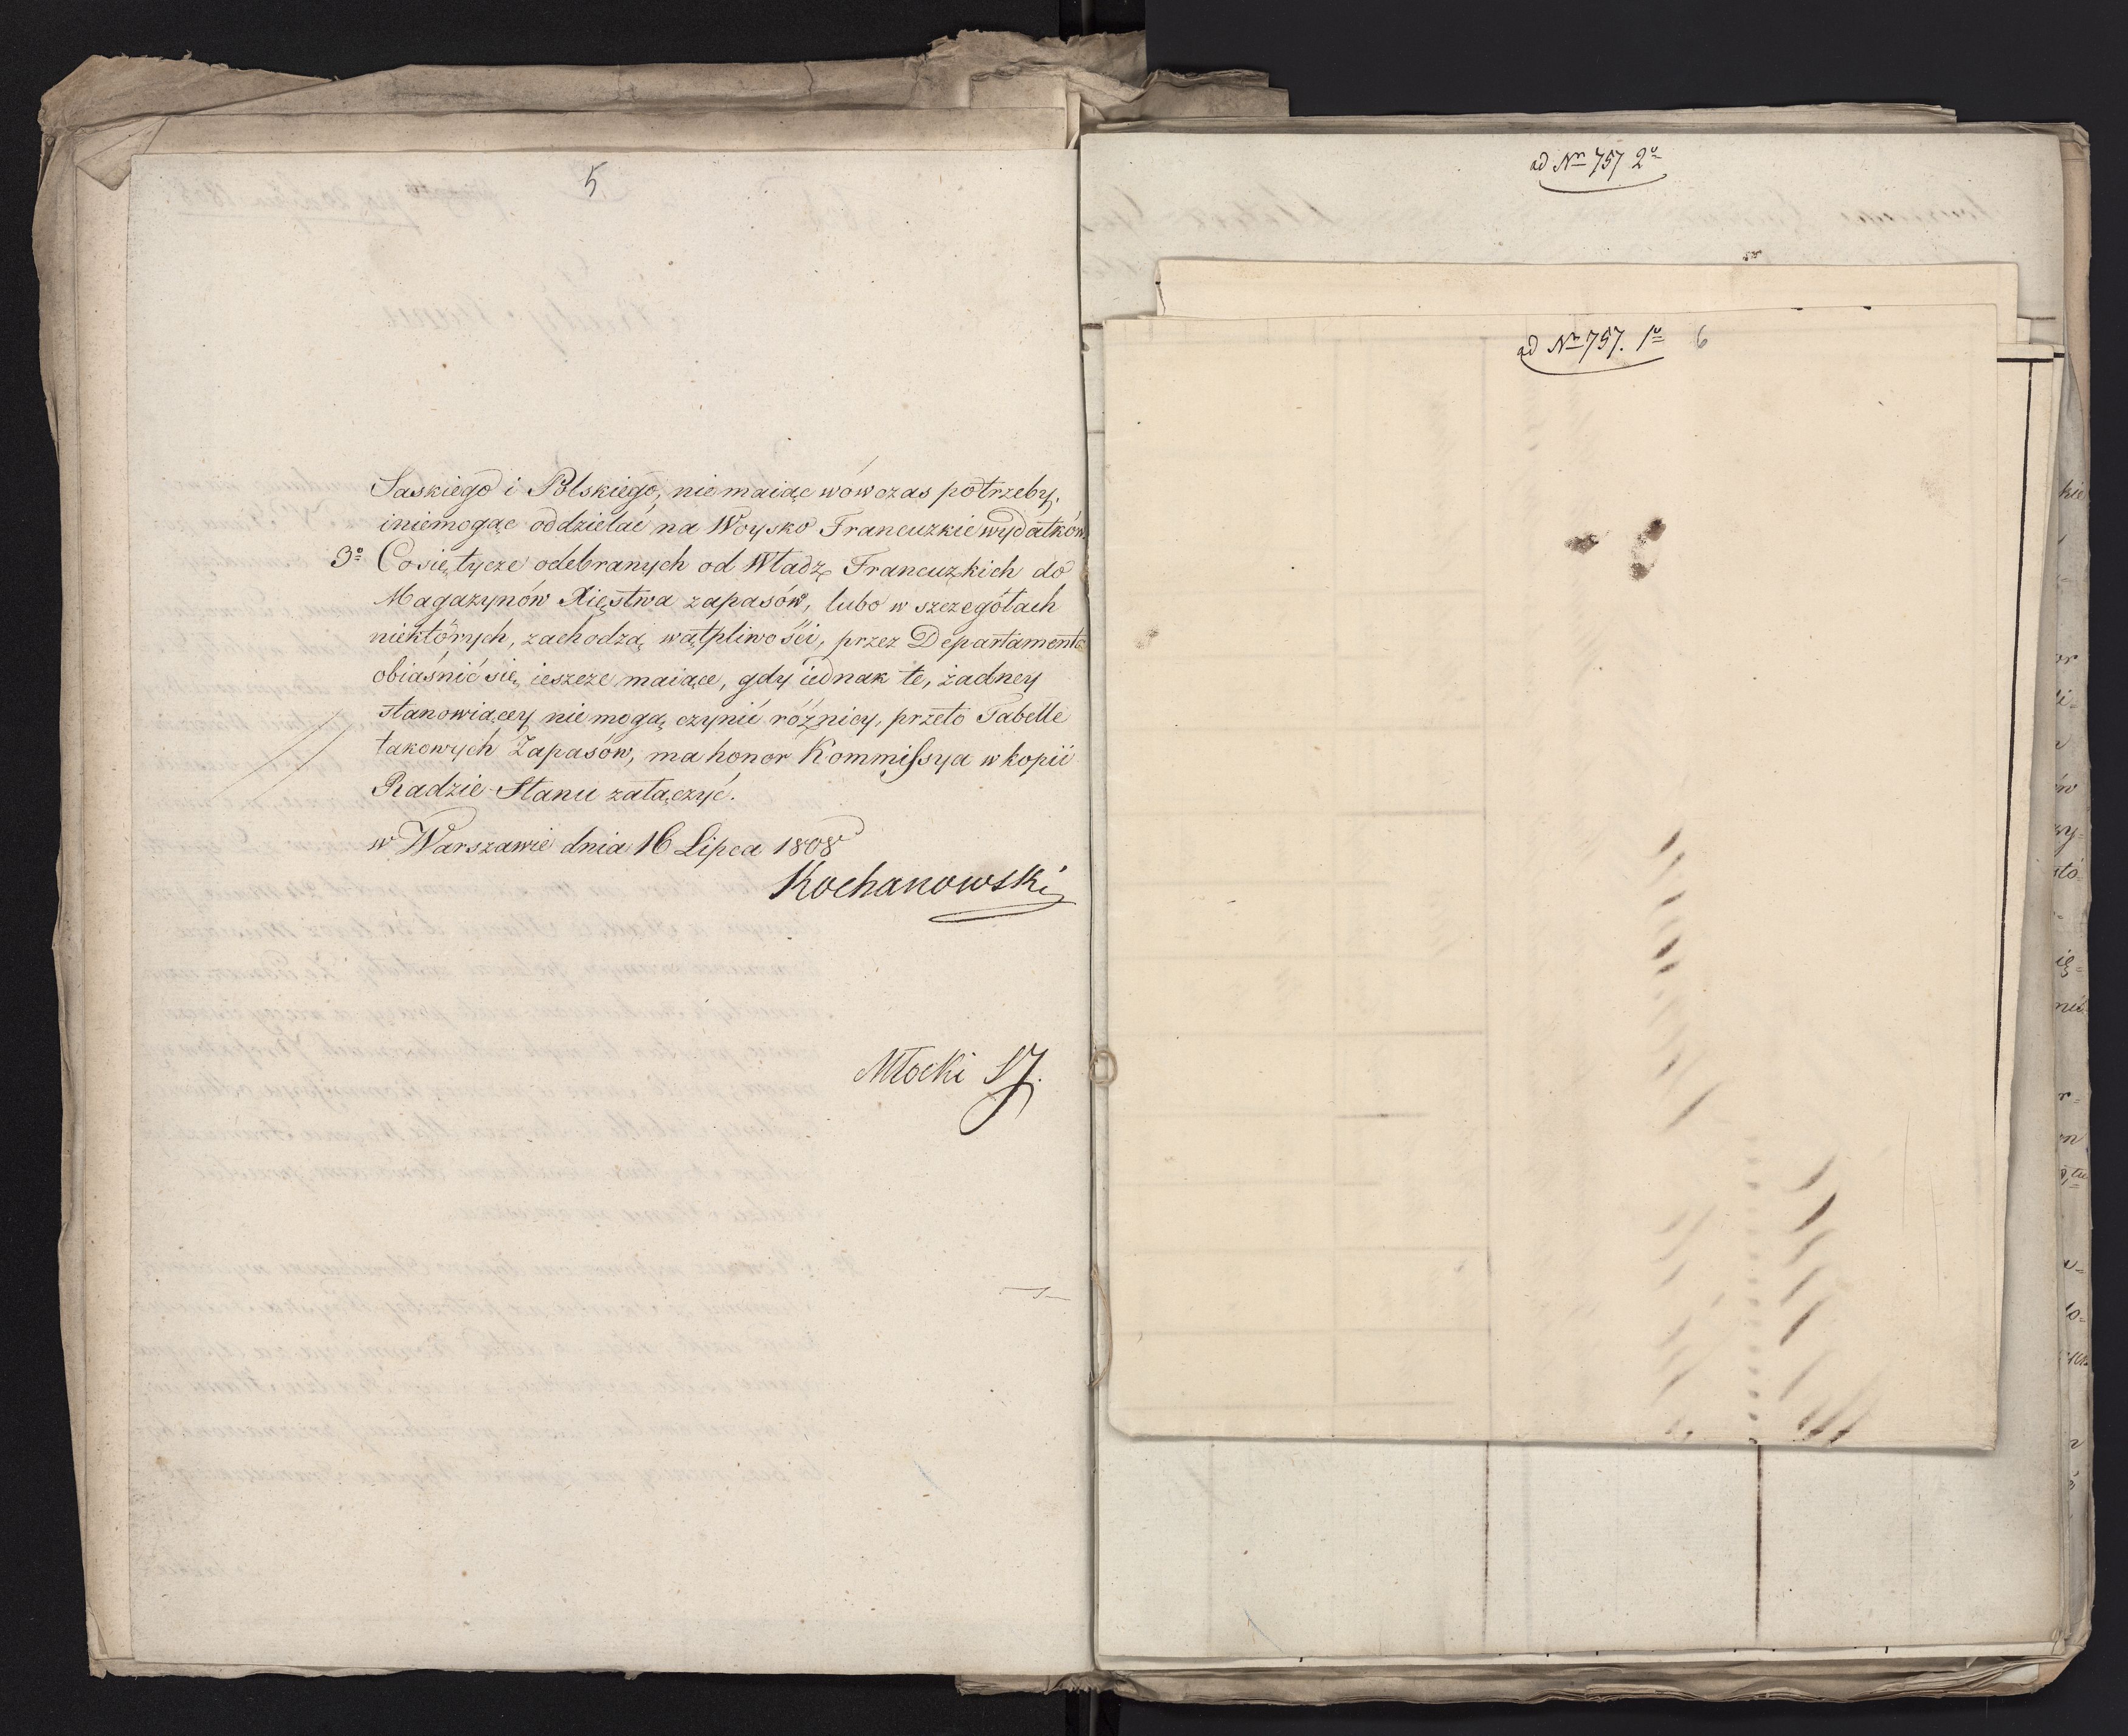 5
Saskiego i Polskiego, nie maiąc wówczas potrzeby,
i niemogąc oddzielać na Woysko Francuzkie wydatków
3o Co się tycze odebranych od Władz Francuzkich do
Magazynów Xięstwa zapasów, lubo w szczegółach
niektórych, zachodzą wątpliwości, przez Departamenta
obiaśnić się ieszcze maiące, gdy iednak te, żadney
stanowiącey nie mogą czynić różnicy, przeto Tabelle
takowych Zapasów, ma honor Kommissya w kopii
Radzie Stanu załączyć.
w Warszawie dnia 16 Lipca 1808
Kochanowski
Młocki SJ.
ad Nro 757 2o
ad Nro 757. 1o 6